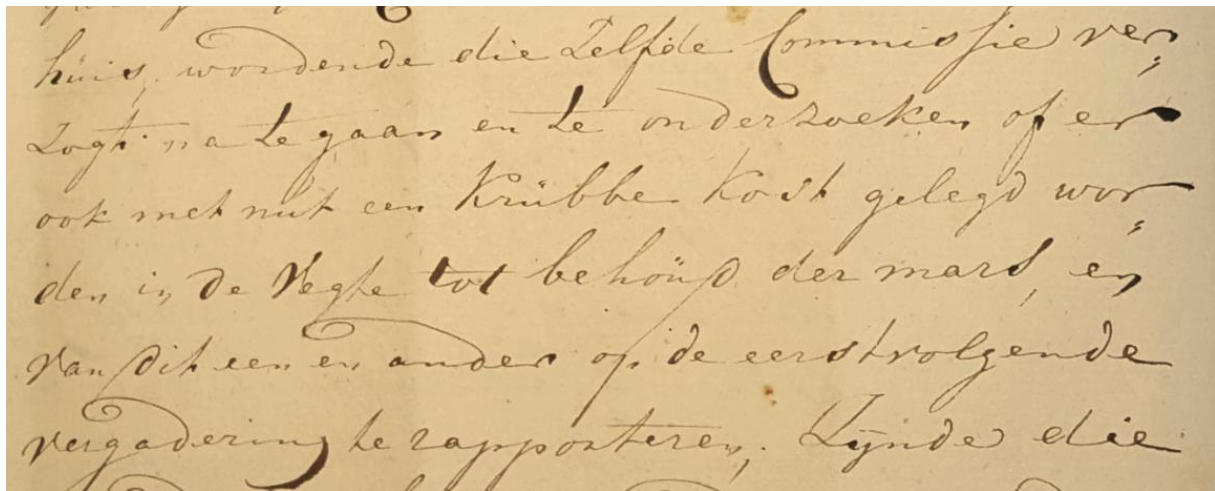 huis, wordende die Zelfde Commissie ver„
zogt na te gaan en te onderzoeken of er
ook met nut een Krubbe Kost gelegd wor„
den in de Veghe tot behoud der mars, en
van dit een en ander op de eerstvolgende
vergadering te rapporteren, Zijnde die